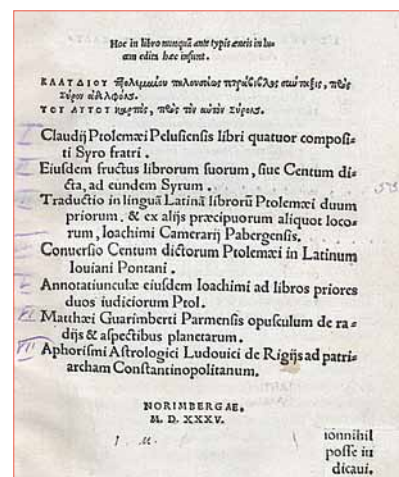 Hoc in libro nunquã ante typis æneis in lu=
cem edita hæc insunt.
ΚΛΑΥΔΙΟΥ
ΤΟΥ ΑΥΤΟΥ
Claudij Ptolemæi Pelusiensis libri quatuor composi=
ti Syro fratri.
Eiusdem fructus librorum suorum, siue Centum di=
cta, ad eundem Syrum.
Traductio in linguã Latinã librorũ Ptolemæi duum
priorum, & ex alijs præcipuorum aliquot loco=
rum, Ioachimi Camerarij Pabergensis.
Conuersio Centum dictorum Ptolemæi in Latinum
Iouiani Pontani.
Annotatiunculæ eiusdem Ioachimi ad libros priores
duos iudiciorum Ptol.
Matthæi Guarimberti Parmensis opusculum de ra=
dijs & aspectibus planetarum.
Aphorismi Astrologici Ludouici de Rigijs ad patri=
archam Constantinopolitanum.
NORIMBERGAE,
M. D. XXXV.
ionnihil
posse iu
dicaui.